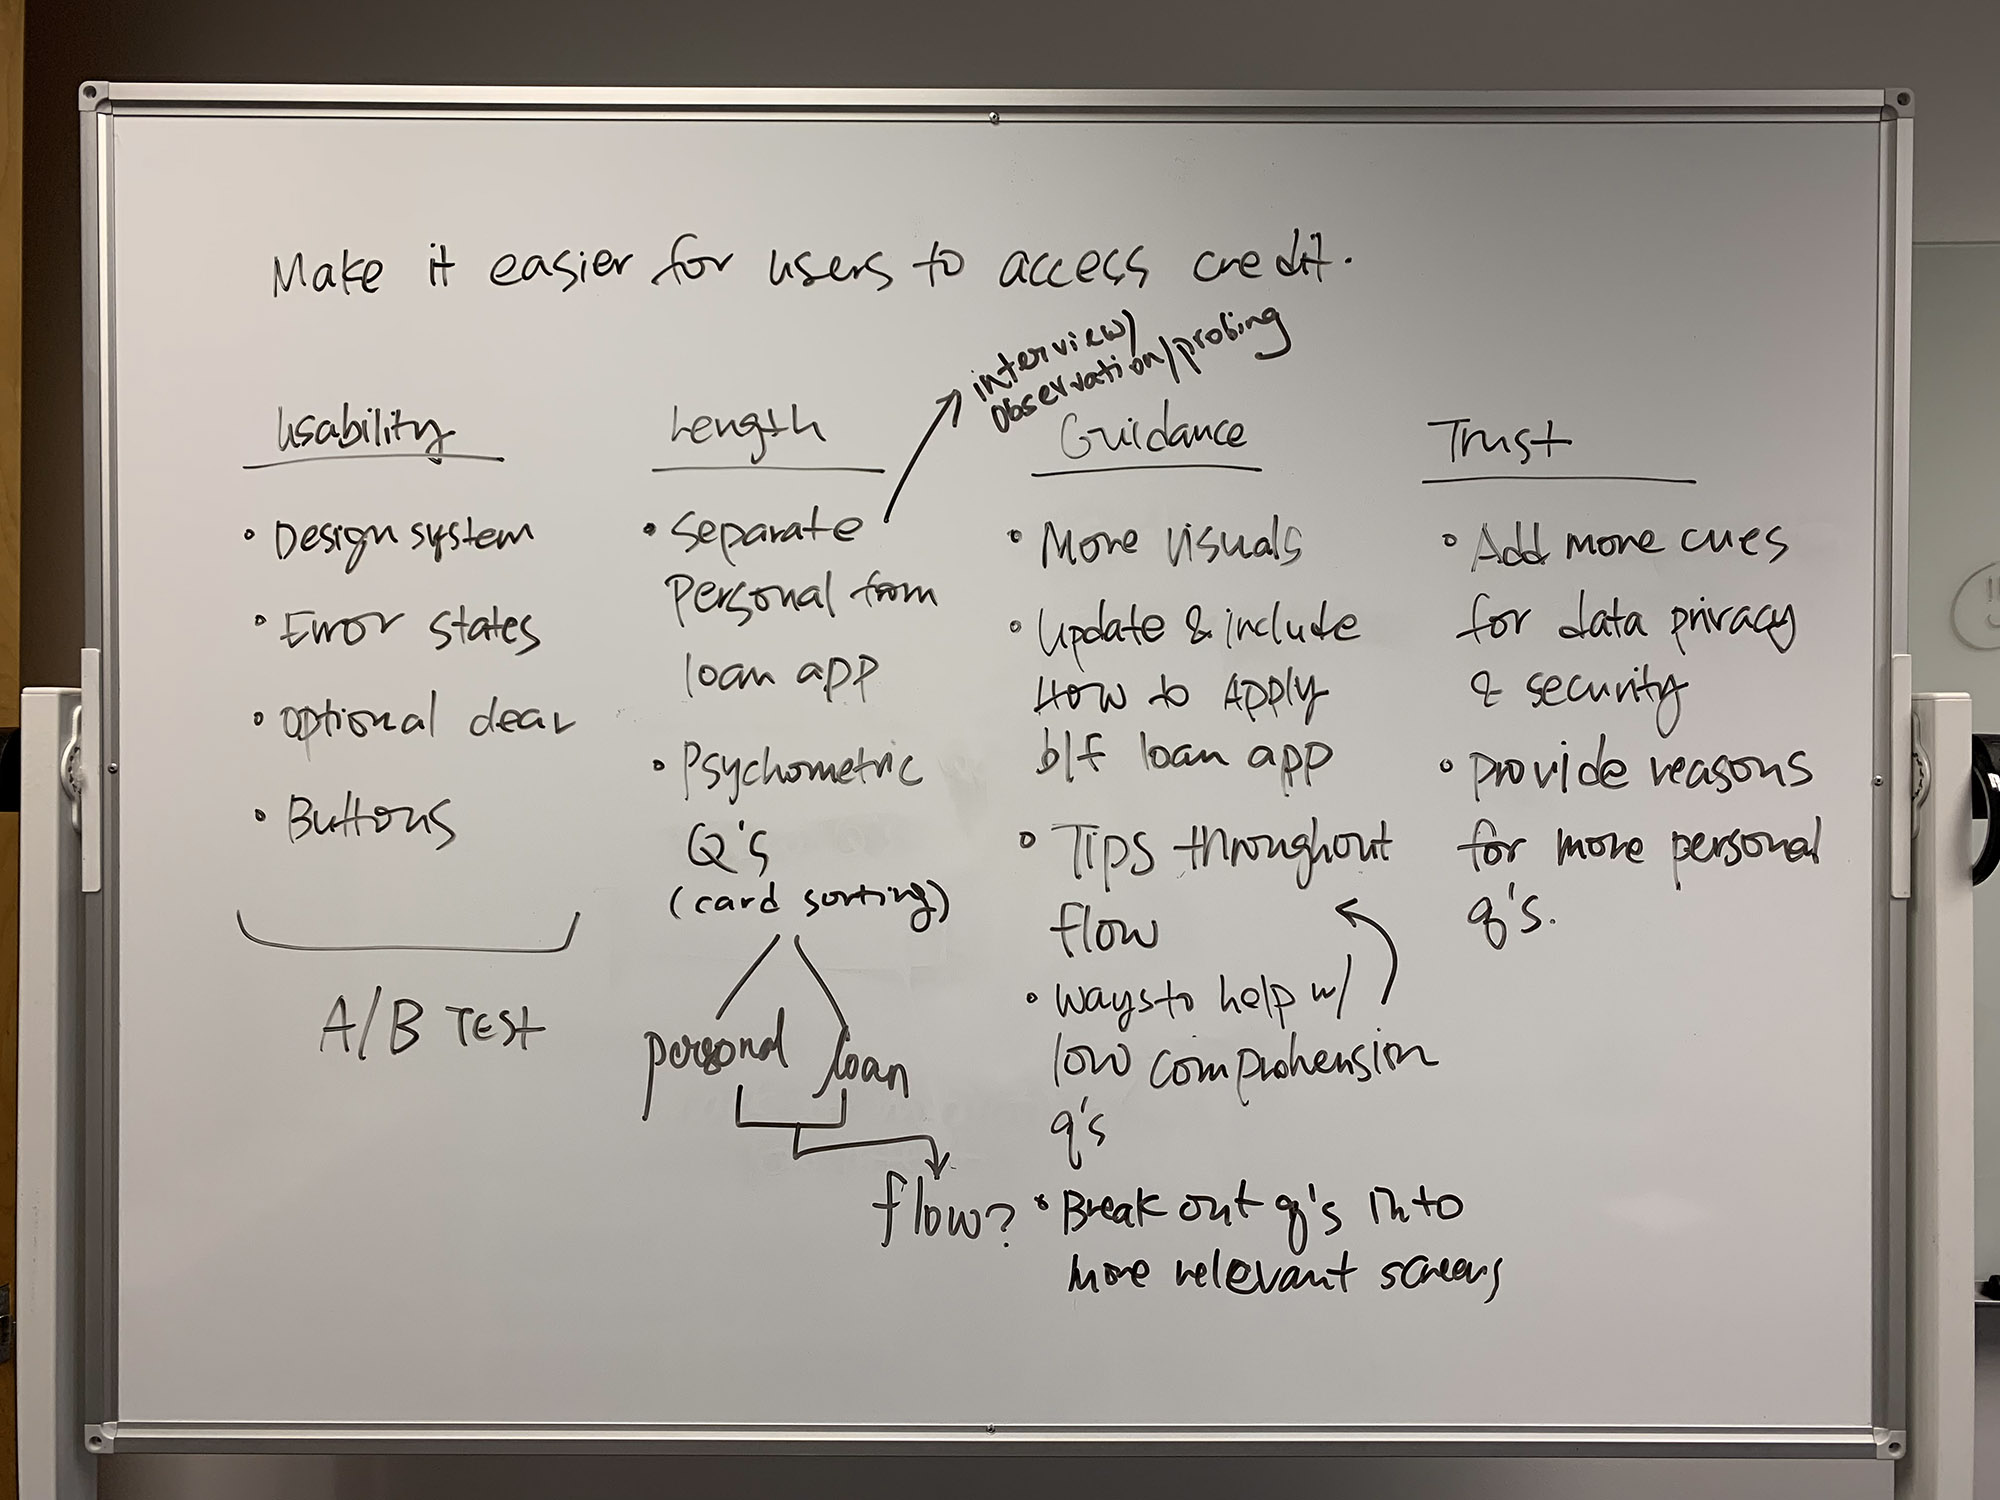 Make it easier for users to access credit.
interview/
observation/probing
Usability
• Design system
• Error states
• Optional clear
• Buttons
A/B TEST
Length
• Separate
Personal from
loan app
• Psychometric
Q's
(card sorting)
personal loan
flow?
Guidance
• More visuals
• Update & include
How to Apply
b/f loan app
• Tips throughout
flow
• Ways to help w/
low comprehension
q's
• Break out q's into
more relevant screens
Trust
• Add more cues
for data privacy
& security
• provide reasons
for more personal
q's.